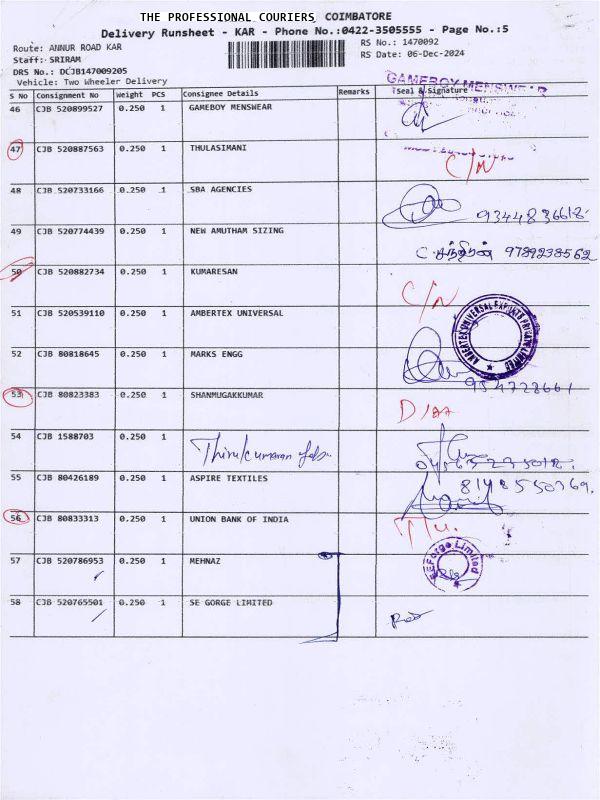 THE PROFESSIONAL COURIERS, COIMBATORE
Delivery Runsheet - KAR - Phone No.:0422-3505555 - Page No.:5
Route: ANNUR ROAD KAR
RS No.: 1470092
Staff: SRIRAM
RS Date: 06-Dec-2024
DRS No.: DCJB147009205
Vehicle: Two Wheeler Delivery
GAMEBOY MENSWEAR
S No Consignment No Weight PCS Consignee Details Remarks Seal & Signature
46 CJB 520899527 0.250 1 GAMEBOY MENSWEAR
47 CJB 520887563 0.250 1 THULASIMANI C/N
48 CJB 520733166 0.250 1 SBA AGENCIES 9344836618
49 CJB 520774439 0.250 1 NEW AMUTHAM SIZING C. சந்திரன் 9789238562
50 CJB 520882734 0.250 1 KUMARESAN C/N
51 CJB 520539110 0.250 1 AMBERTEX UNIVERSAL
AMBERTEX UNIVERSAL EXPORTS PRIVATE LIMITED
52 CJB 80818645 0.250 1 MARKS ENGG
53 CJB 80823383 0.250 1 SHANMUGAKKUMAR
54 CJB 1588703 0.250 1 Thirukumaran
55 CJB 80426189 0.250 1 ASPIRE TEXTILES 8148550369
56 CJB 80833313 0.250 1 UNION BANK OF INDIA
57 CJB 520786953 0.250 1 MEHNAZ
58 CJB 520765501 0.250 1 SE GORGE LIMITED